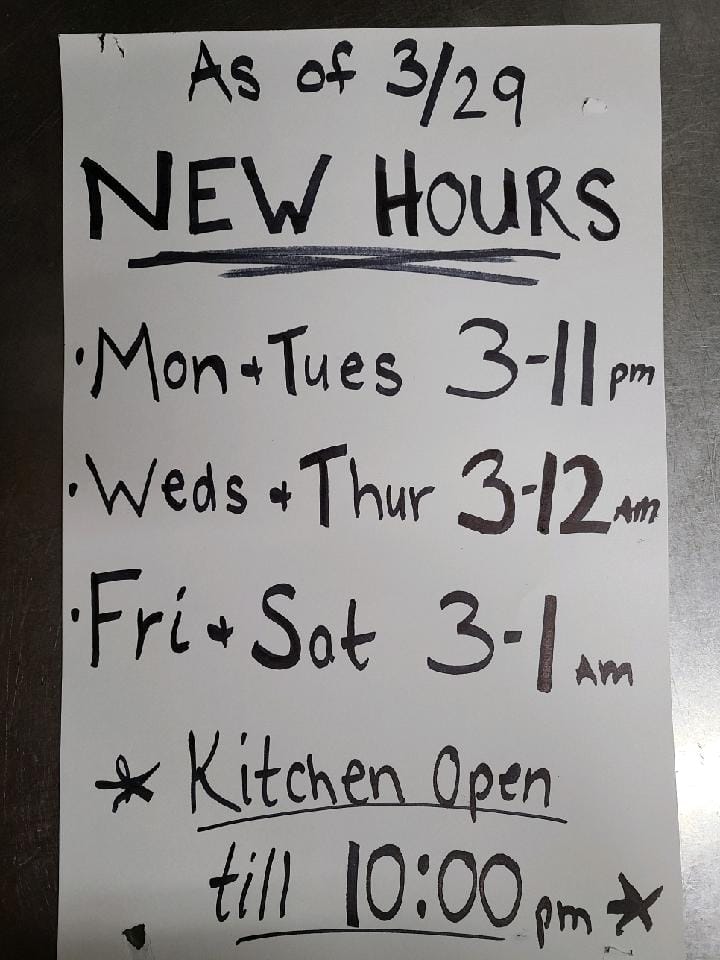 As of 3/29
NEW HOURS
·Mon + Tues 3-11pm
·Weds + Thur 3-12AM
·Fri + Sat 3-1 Am
* Kitchen Open
till 10:00pm *